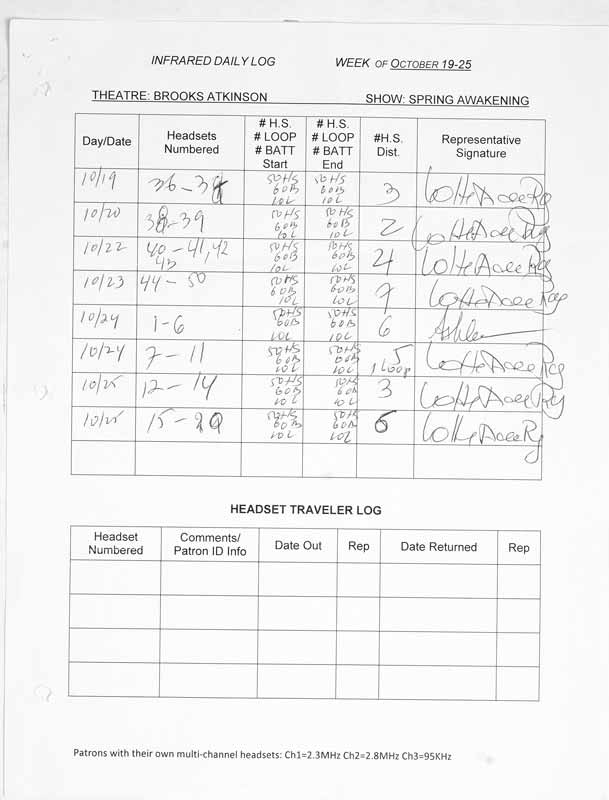 INFRARED DAILY LOG WEEK OF OCTOBER 19-25
THEATRE: BROOKS ATKINSON SHOW: SPRING AWAKENING
Day/Date Headsets Numbered # H.S. # LOOP # BATT Start # H.S. # LOOP # BATT End #H.S. Dist. Representative Signature
10/19 36-38 50HS 60B 10L 50HS 60B 10L 3
10/20 38-39 50HS 60B 10L 50HS 60B 10L 2
10/22 40-41, 42 43 50HS 60B 10L 50HS 60B 10L 4
10/23 44-50 50HS 60B 10L 50HS 60B 10L 7
10/24 1-6 50HS 60B 10L 50HS 60B 10L 6
10/24 7-11 50HS 60B 10L 50HS 60B 10L 5 1 Loop
10/25 12-14 50HS 60B 10L 50HS 60B 10L 3
10/25 15-20 50HS 60B 10L 50HS 60B 10L 6
HEADSET TRAVELER LOG
Headset Numbered Comments/ Patron ID Info Date Out Rep Date Returned Rep
Patrons with their own multi-channel headsets: Ch1=2.3MHz Ch2=2.8MHz Ch3=95KHz